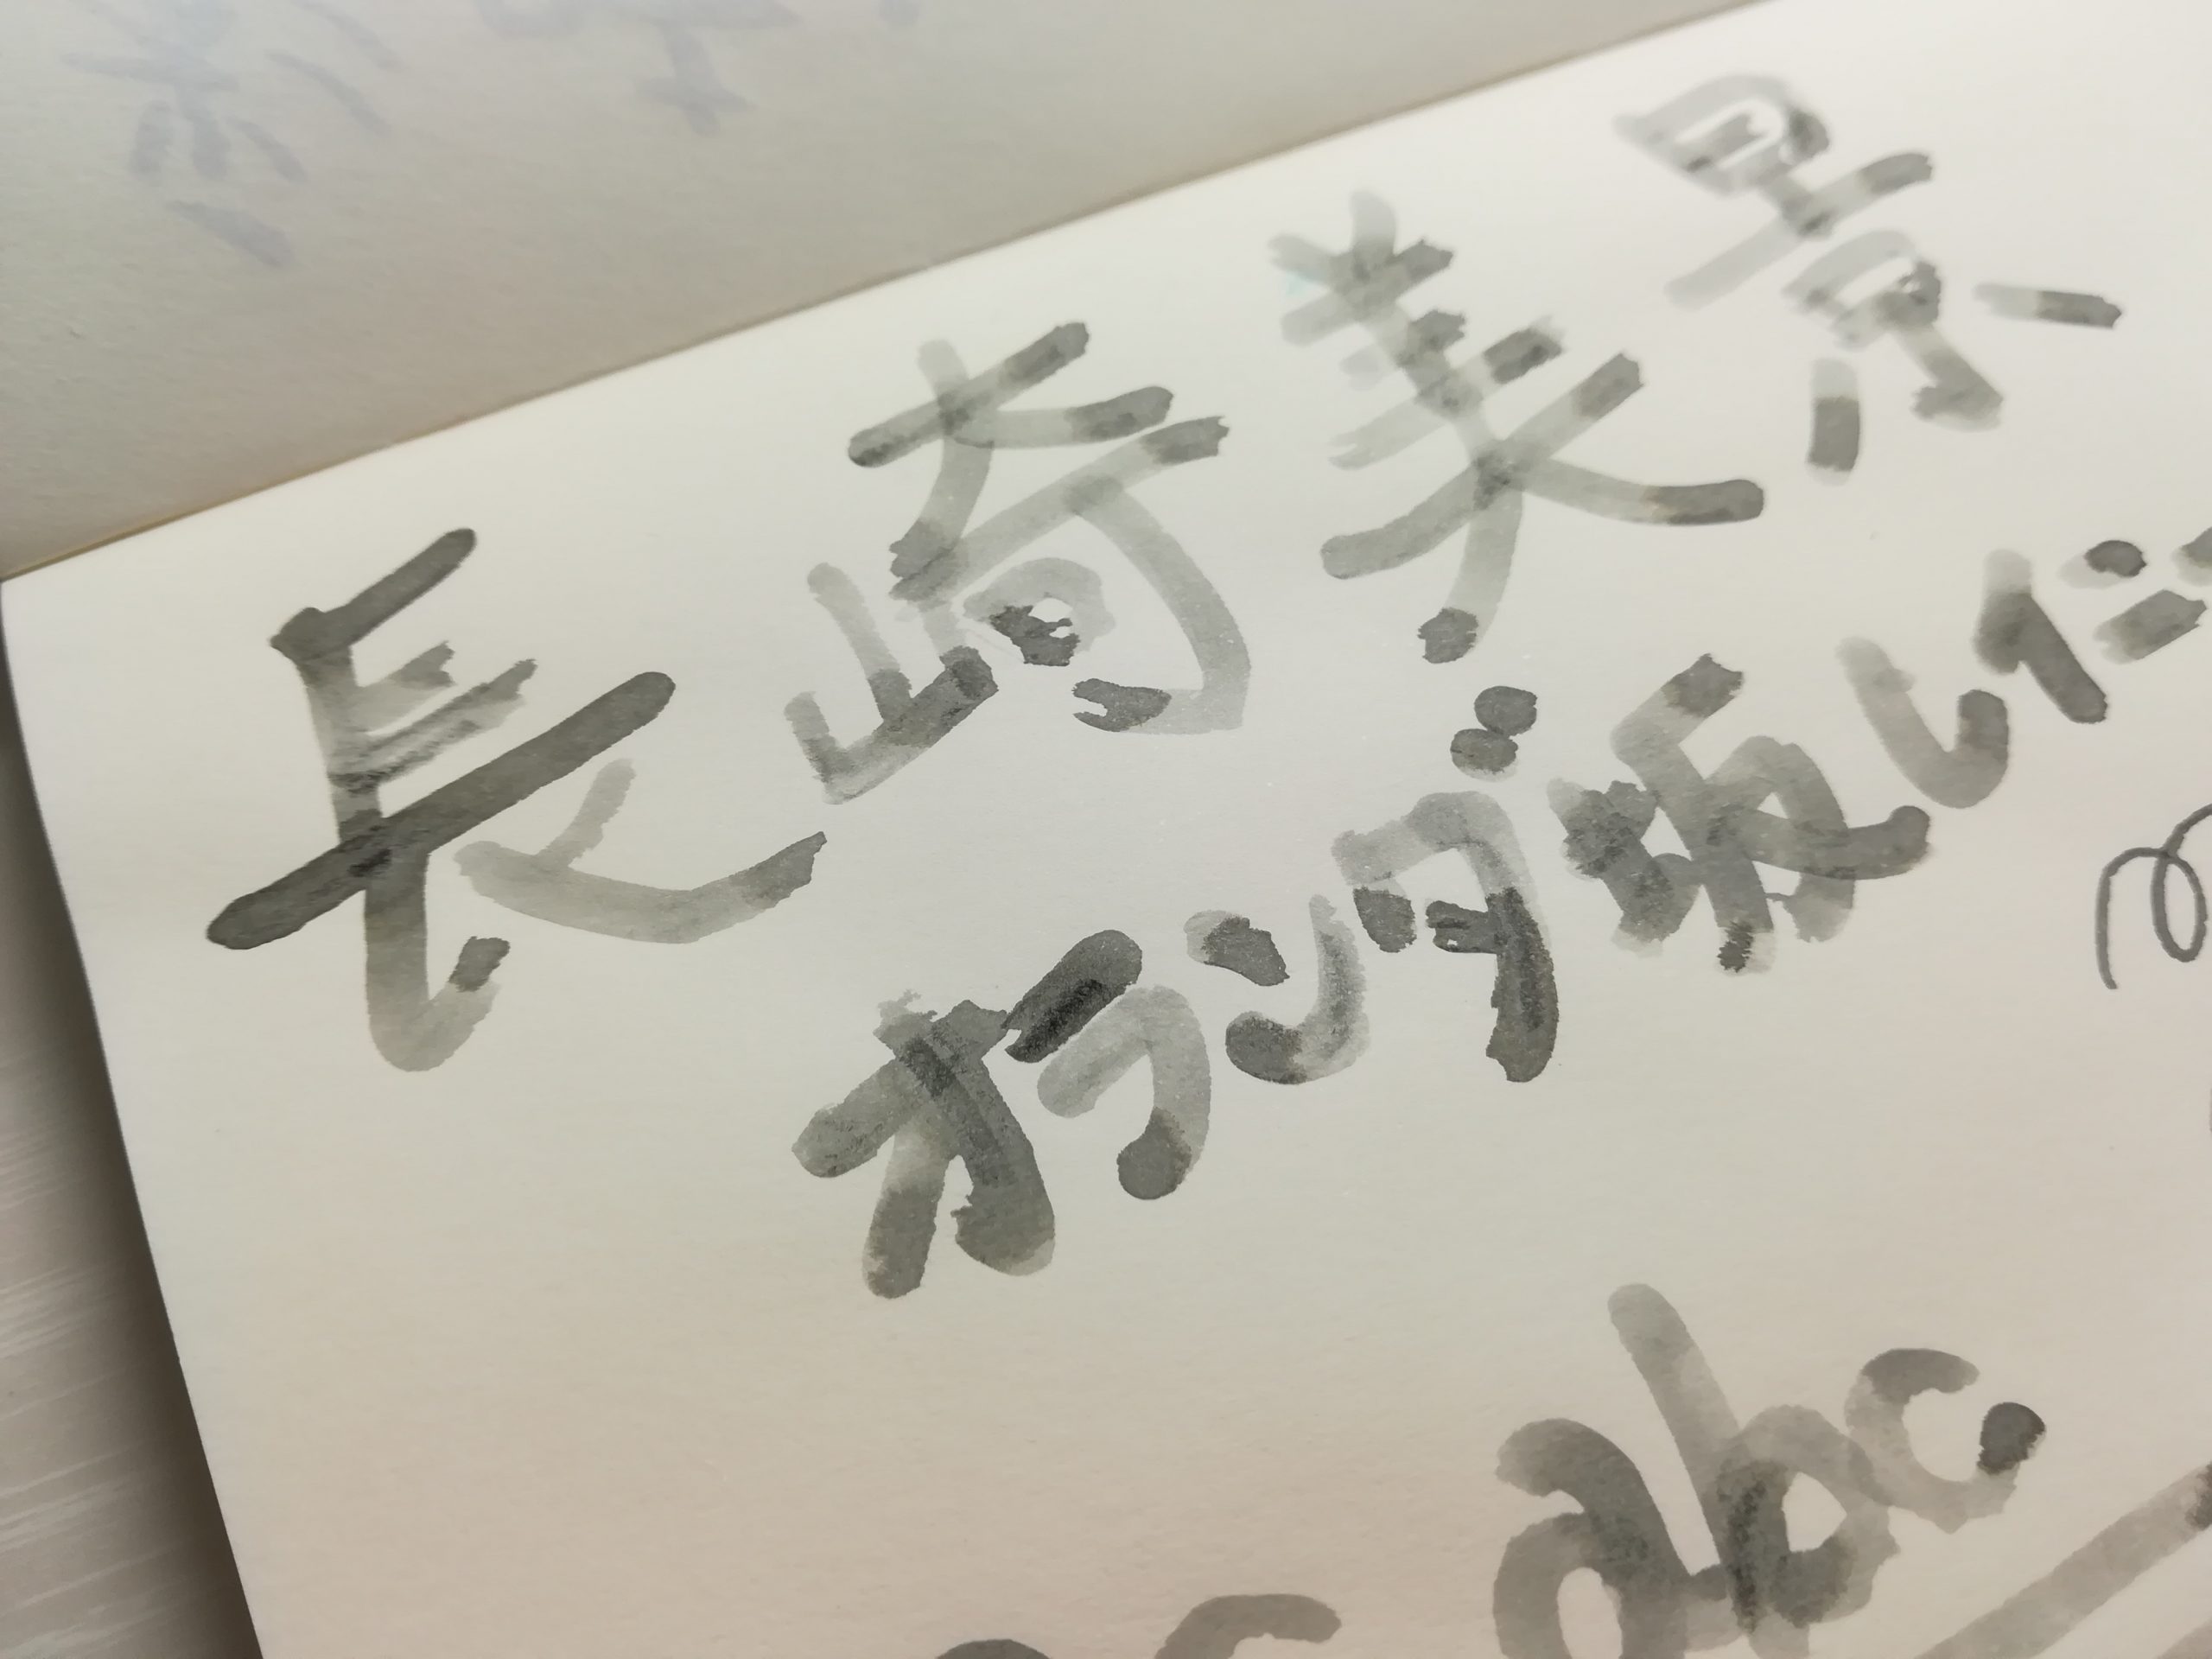 長崎美景
オランダ坂
abc